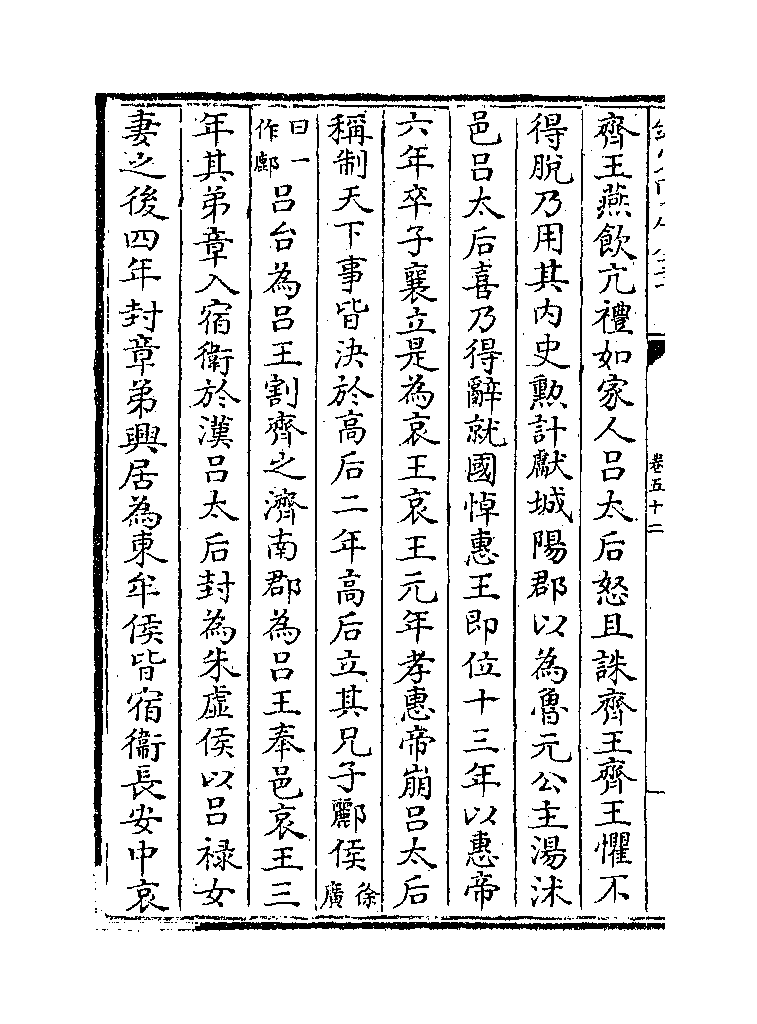 齊王燕飲亢禮如家人吕太后怒且誅齊王齊王懼不
得脫乃用其内史勲計獻城陽郡以為魯元公主湯沐
邑吕太后喜乃得辭就國悼惠王即位十三年以惠帝
六年卒子襄立是為哀王哀王元年孝惠帝崩吕太后
稱制天下事皆決於高后二年高后立其兄子酈侯徐廣
曰一作鄜吕台為吕王割齊之濟南郡為吕王奉邑哀王三
年其弟章入宿衛於漢吕太后封為朱虚侯以吕禄女
妻之後四年封章弟興居為東牟侯皆宿衞長安中哀
卷五十二